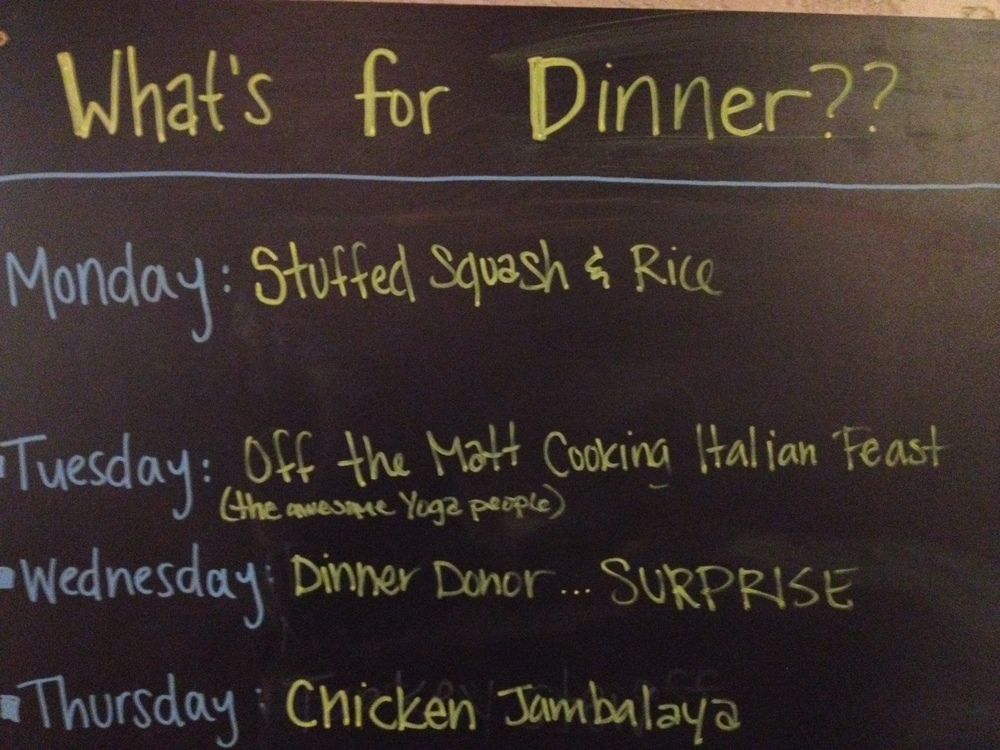 What's for Dinner??
Monday: Stuffed Squash & Rice
Tuesday: Off the Matt Cooking Italian Feast
(the awesome Yoga people)
Wednesday: Dinner Donor ... SURPRISE
Thursday: Chicken Jambalaya